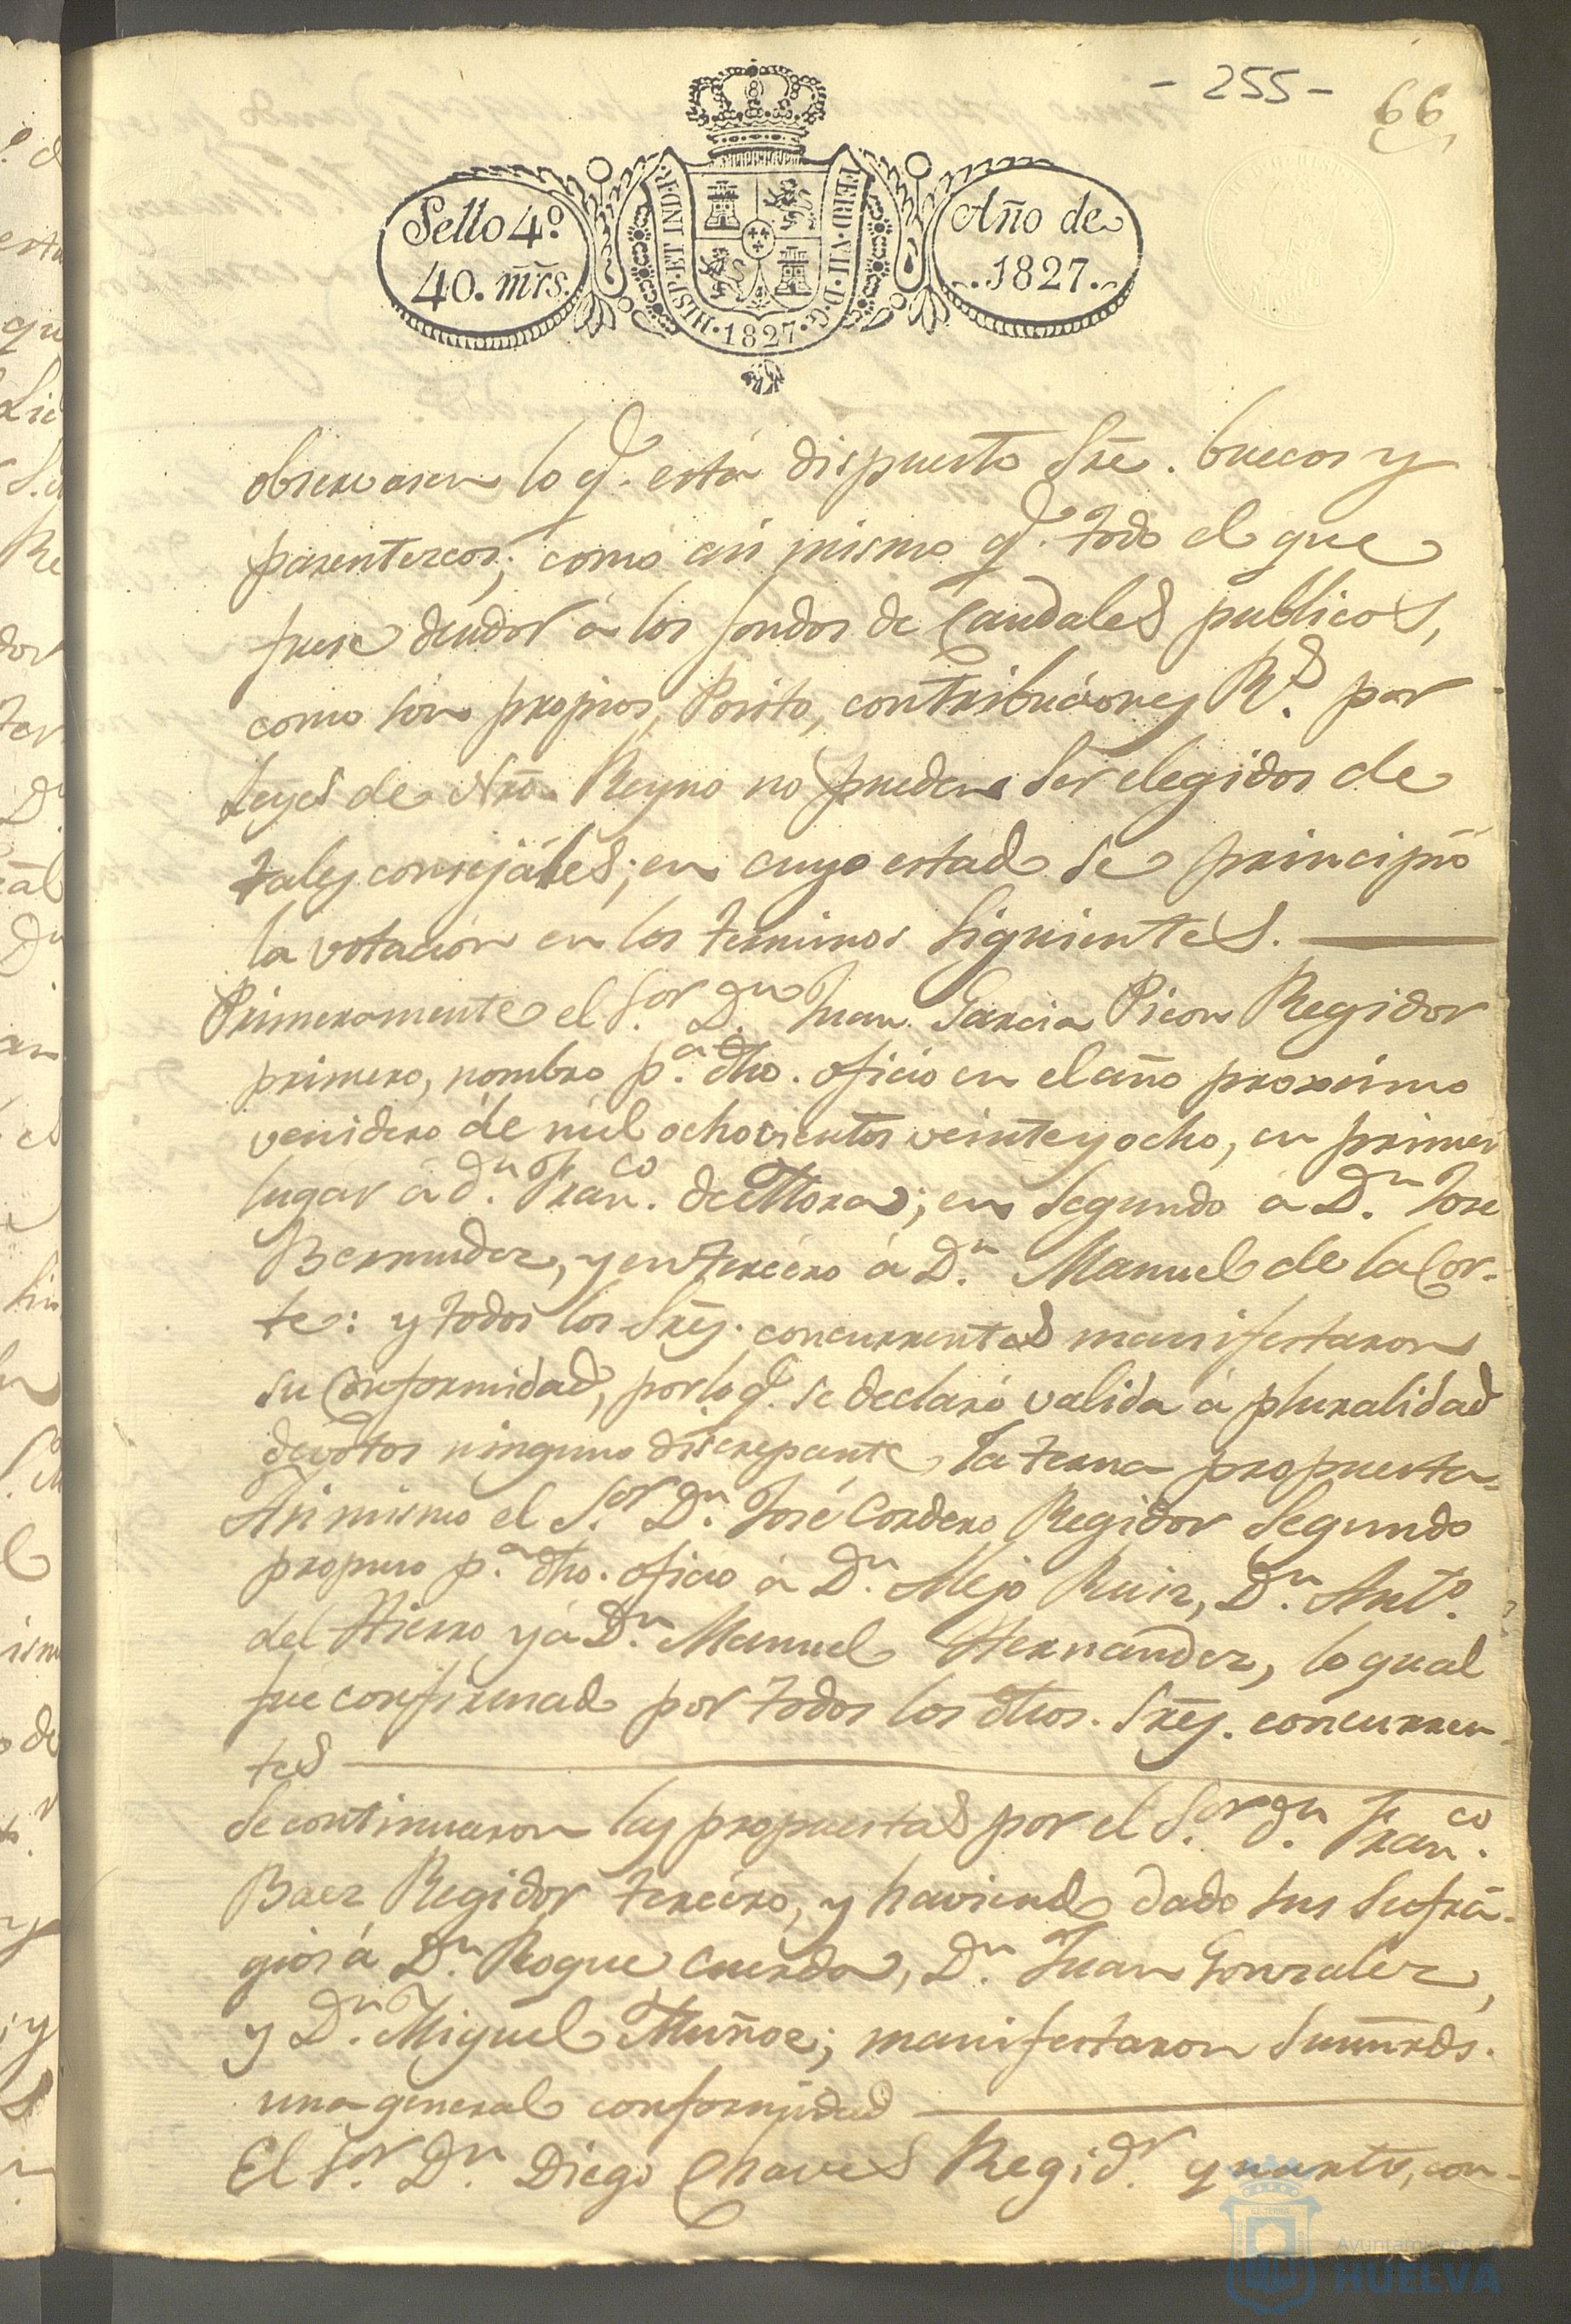 - 255 -
66,
Sello 4.º
40. mr̃s.
HISP. ET IND. R.
FERD. VII. D. G.
· 1827 ·
Año de
1827.
observasen lo q.e está dispuesto Sre. huecos y
parentezcos; como asi mismo q.e todo el que
fuese deudor á los fondos de Caudales publicos,
como son propios, Posito, contribuciones R.s por
Leyes de Nro. Reyno no pueden ser elegidos de
tales consejáles; en cuyo estado se principió
la votacion en los terminos siguientes.
Primeramente el S.or D.n Juan Garcia Picon Regidor
primero, nombro p.a dho. oficio en el año proximo
venidero de mil ochocientos veinte y ocho, en primer
lugar á d.n Fran.co de Mora; en segundo á D.n Jose
Bermudez, y en tercero á D.n Manuel de la Cor-
te: y todos los Sres. concurrentes manifestaron
su conformidad, por lo q.e se declaró valida á pluralidad
de votos ninguno discrepante, la terna propuesta.
Asi mismo el S.or D.n José Cordero Regidor segundo
propuso p.a dho. oficio á D.n Alejo Ruiz, D.n Ant.o
del Hierro y á D.n Manuel Hernandez, lo qual
fue confirmado por todos los dhos. Sres. concurren-
tes
Se continuaron las propuestas por el S.or d.n Fran.co
Baez Regidor tercero, y haviendo dado sus sufra-
gios á D.n Roque Cuerda, D.n Juan Gonzalez,
y D.n Miguel Muñoz; manifestaron sumrds.
una general conformidad
El S.or D.n Diego Chaves Regid.r quarto, con-
Ayuntamiento de
HUELVA